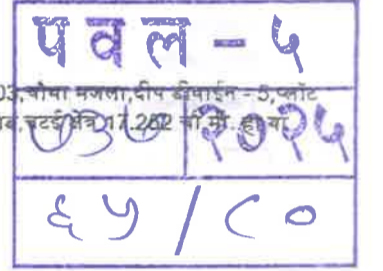 पवल - ५
03, चौथा मजला, दीप डीवाईन - 5, प्लॉट
चटई क्षेत्र 17.282 चौ मी.
७३७ २०२५
६५/८०